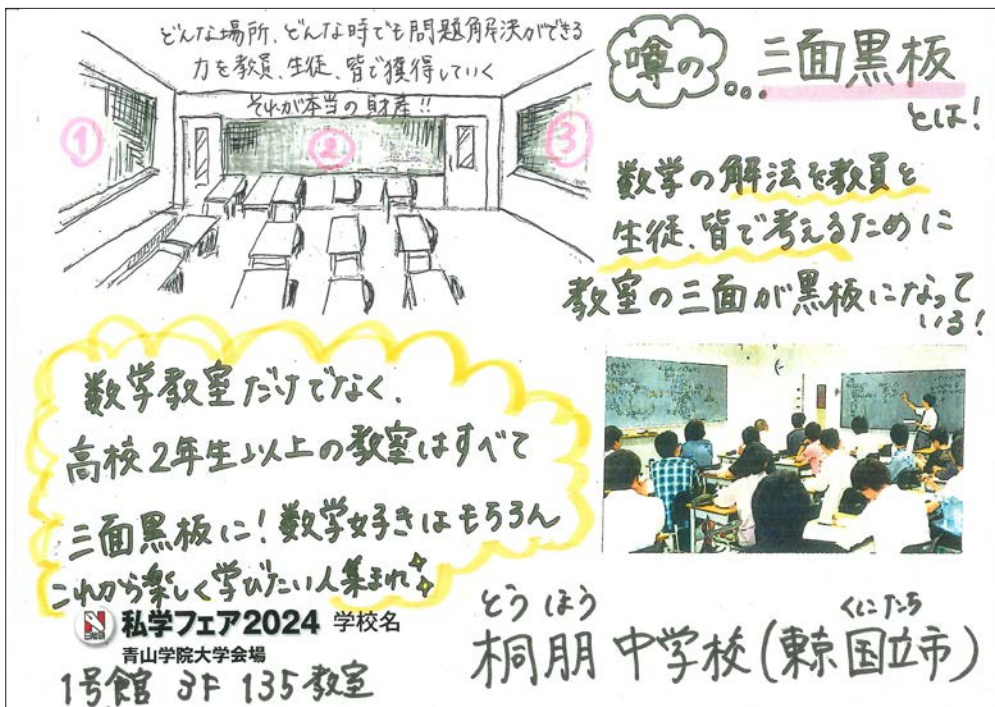 どんな場所、どんな時でも問題解決ができる
力を教員、生徒、皆で獲得していく
それが本当の財産!!
① ② ③
噂の...三面黒板
とは!
数学の解法を教員と
生徒、皆で考えるために
教室の三面が黒板になって
いる!
数学教室だけでなく、
高校2年生以上の教室はすべて
三面黒板に!数学好きはもちろん
これから楽しく学びたい人集まれ
N 日能研
私学フェア2024 学校名
青山学院大学会場
1号館 3F 135教室
とうほう くにたち
桐朋中学校(東京国立市)